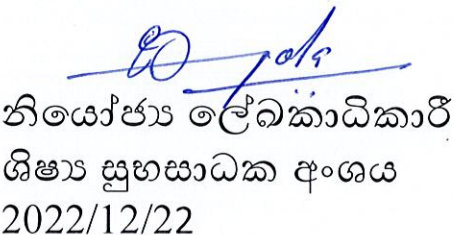 නියෝජ්‍ය ලේඛකාධිකාරී
ශිෂ්‍ය සුභසාධක අංශය
2022/12/22